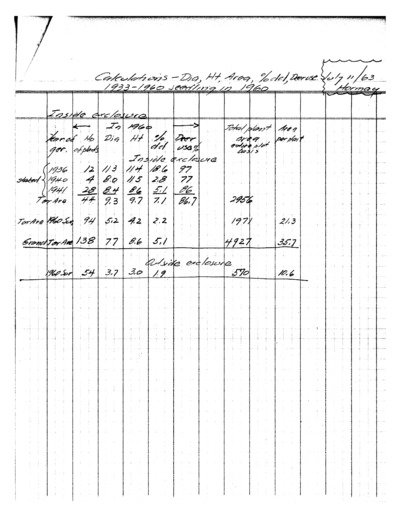 Calculations - Dia, Ht. Area, % dd, Deer use July 11/63
1933-1960 seedling in 1960 Hormay
Inside exclosure
← In 1960 → Total plant Area
Year of No Dia Ht % Deer area per plant
ger. of plants dd use%
basis
Inside exclosure
1936 12 11.3 11.4 18.6 97
staked 1940 4 8.0 11.5 2.8 77
1941 28 8.4 8.6 5.1 86
Tor Ave 44 9.3 9.7 7.1 86.7 2956
Tor Ave 1960 Sur 94 5.2 4.2 2.2 1971 21.3
Grand Tor Ave 138 7.7 8.6 5.1 4927 35.7
Outside exclosure
1960 Sur 54 3.7 3.0 1.9 570 10.6